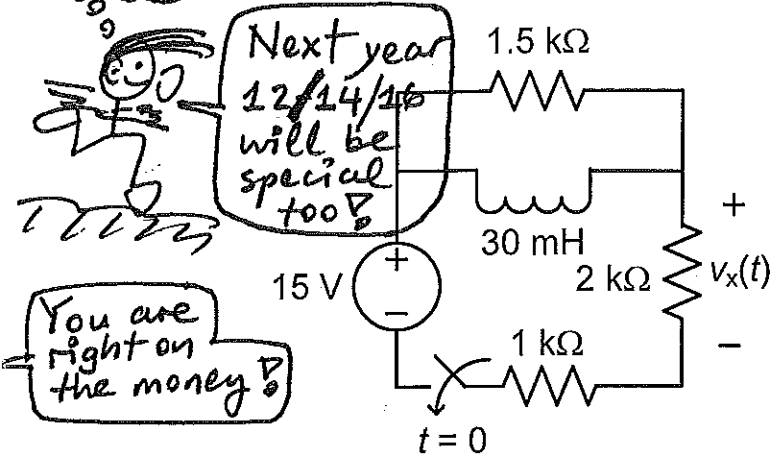 Next year
12/14/16
will be
special
too!
You are
right on
the money!
1.5 kΩ
30 mH
15 V
+
−
2 kΩ
+
vx(t)
−
1 kΩ
t = 0